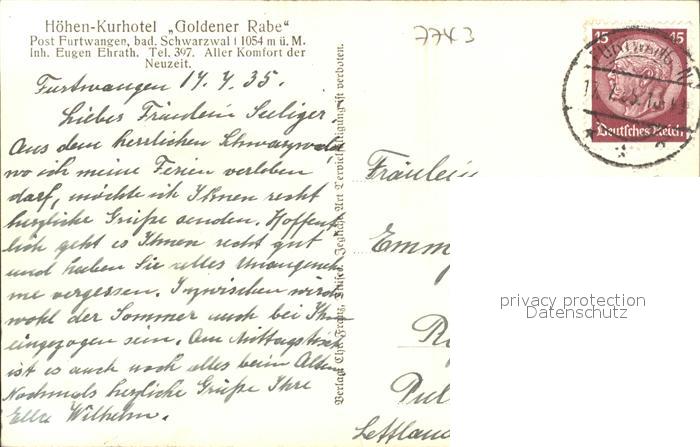 Höhen-Kurhotel „Goldener Rabe"
Post Furtwangen, bad. Schwarzwal 1054 m ü. M.
Inh. Eugen Ehrath. Tel. 397. Aller Komfort der
Neuzeit.
7743
45 45
Deutsches Reich
Furtwangen 17.7.35.
Liebes Fräulein Seeliger,
Aus dem herrlichen Schwarzwald,
wo ich meine Ferien verleben
darf, möchte ich Ihnen recht
herzliche Grüße senden. Hoffent-
lich geht es Ihnen recht gut
und haben Sie alles Unangeneh-
me vergessen. Inzwischen wird
wohl der Sommer auch bei Ihnen
eingezogen sein. Am Mittagstisch
ist es auch noch alles beim Alten.
Nochmals herzliche Grüße Ihre
Ella Wilhelm.
Verlag Chr. Franz, Jegliche Art Vervielfältigung ist verboten.
Fräulein
Emm
R
Pul
Lettland
privacy protection
Datenschutz